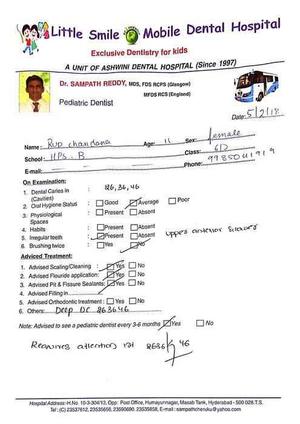 Little Smile Mobile Dental Hospital
Exclusive Dentistry for kids
A UNIT OF ASHWINI DENTAL HOSPITAL (Since 1997)
Dr. SAMPATH REDDY, MDS, FDS RCPS (Glasgow)
MFDS RCS (England)
Pediatric Dentist
Date: 5/2/18
Name: Rup chandana Age: 11 Sex: female
School: HPS. B Class: 6D
E-mail: Phone: 9985041919
On Examination:
1. Dental Caries in (Cavities) 26,36,46
2. Oral Hygiene Status Good Average Poor
3. Physiological Spaces Present Absent
4. Habits Present Absent
5. Irregular teeth Present Absent upper anterior
6. Brushing twice Yes No
Adviced Treatment:
1. Advised Scaling/Cleaning Yes No
2. Advised Flouride application: Yes No
3. Advised Pit & Fissure Sealants: Yes No
4. Advised Filling in
5. Advised Orthodontic treatment : No Yes No
6. Others: Deep DC 263646
Note: Advised to see a pediatric dentist every 3-6 months Yes No
Requires attention in 2636 46
Hospital Address: H.No. 10-3-304/13, Opp: Post Office, Humayunnagar, Masab Tank, Hyderabad - 500 028.T.S.
Tel: (C) 23537612, 23535656, 23590690, 23535858, E-mail: sampathcheruku@yahoo.com